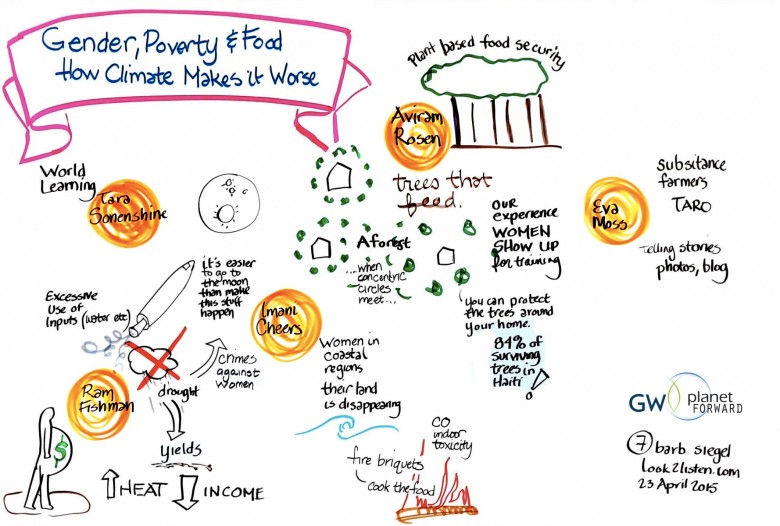 Gender, Poverty & Food
How Climate Makes it Worse
Plant based food security
Aviram
Rosen
trees that
feed.
World
Learning
Tara
Sonenshine
it's easier
to go to
the moon
than make
this stuff
happen
Excessive
Use of
Inputs (water etc)
Ram
Fishman
drought
crimes
against
women
yields
$
HEAT
INCOME
Imani
Cheers
Women in
coastal
regions
their land
is disappearing
Aforest
...when
concentric
circles
meet...
OUR
experience
WOMEN
SHOW UP
for training
you can protect
the trees around
your home.
84% of
surviving
trees in
Haiti!
CO
indoor
toxicity
fire briquets
cook the food
Eva
Moss
subsitance
farmers
TARO
telling stories
photos, blog
GW planet
FORWARD
7 barb siegel
look2listen.com
23 April 2015